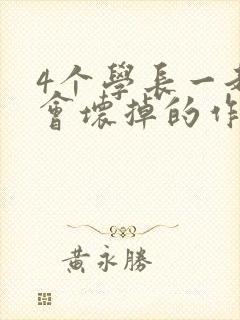 4个學長一
會壞掉的作
黃永勝